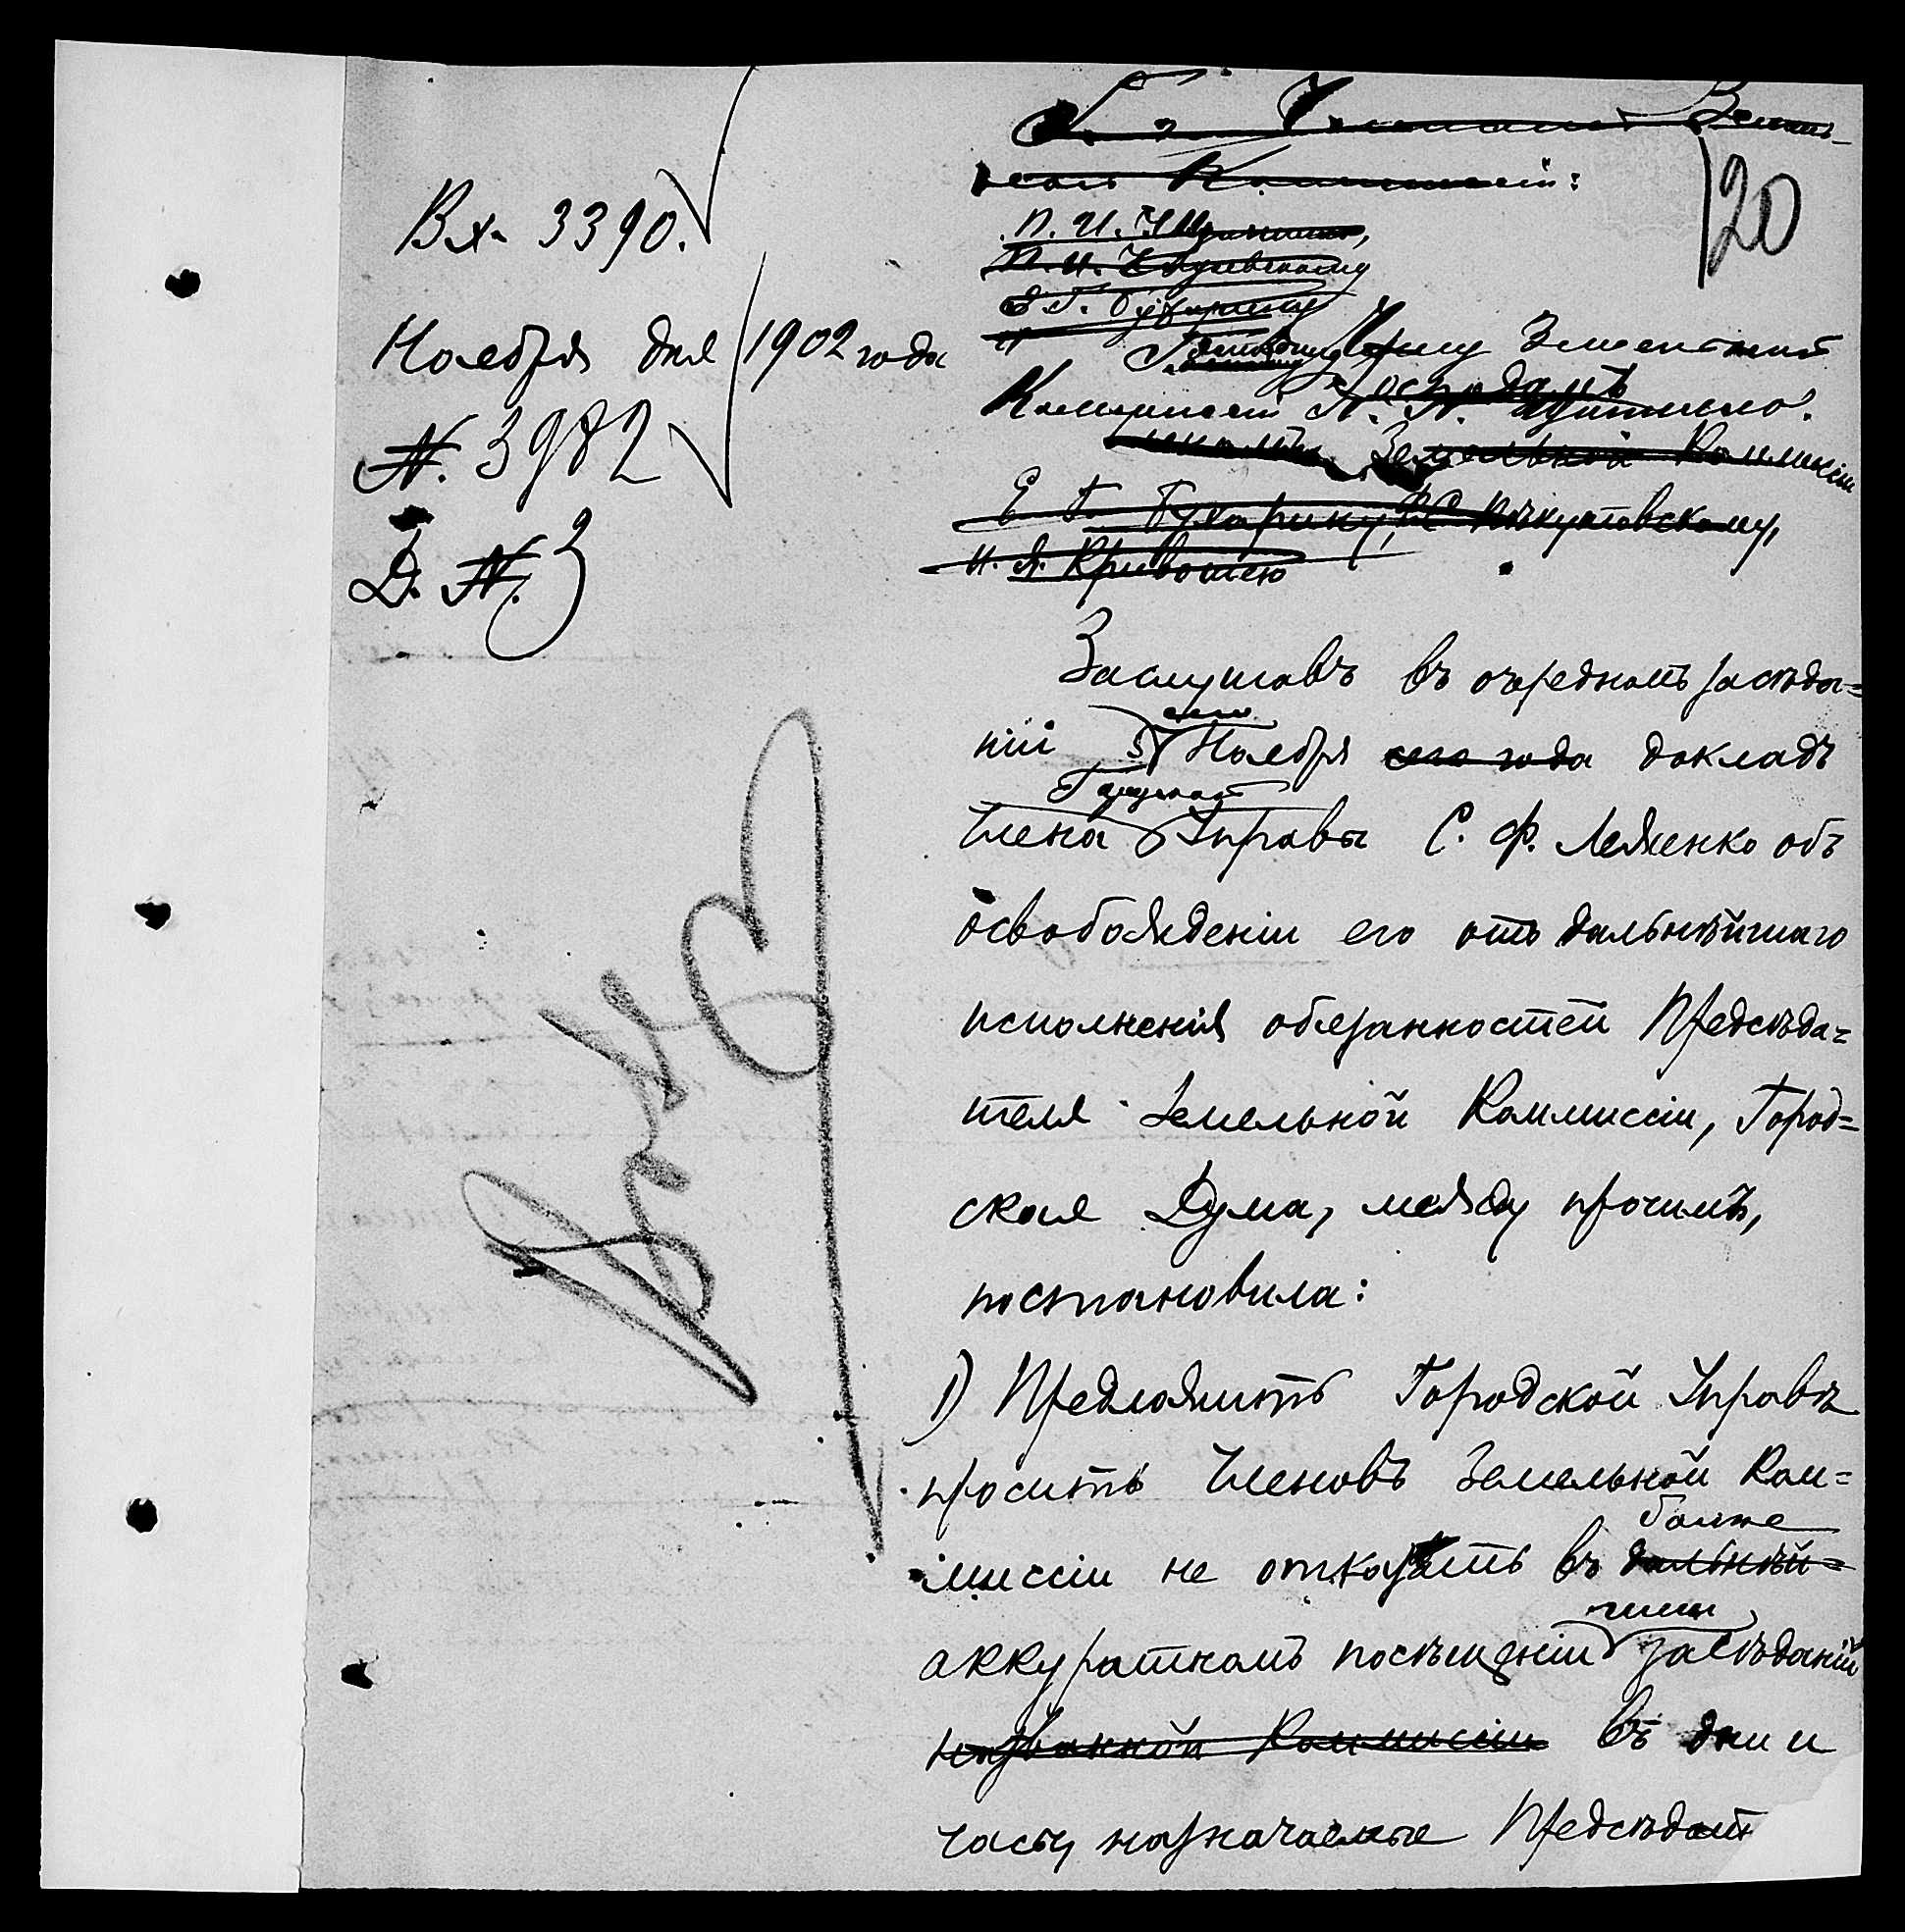 120
Вх. 3390.
Ноября дня 1902 года
№. 3982
Д. №. 3
Коммиссіи:
П. И.
П. И.
Е. Г. Бухарину
и
Члену Земельной
Господамъ
Коммиссіи
членамъ Земельной Коммиссіи
Е. Г. Бухарину,
И. Я. Кривошею
Заслушавъ въ очередномъ засѣда=
сего
ніи 5 Ноября сего года докладъ
Городской
Члена Управы С. Ф. Леженко объ
освобожденіи его отъ дальнѣйшаго
исполненія обязанностей Предсѣда=
теля Земельной Коммиссіи, Город=
ская Дума, между прочимъ,
постановила:
1) Предложить Городской Управѣ
просить Членовъ Земельной Ком=
болѣе
миссіи не отказать въ дальнѣй=
аккуратномъ посѣщеніи засѣданій
названной Коммиссіи въ дни и
часы, назначаемые Предсѣдат